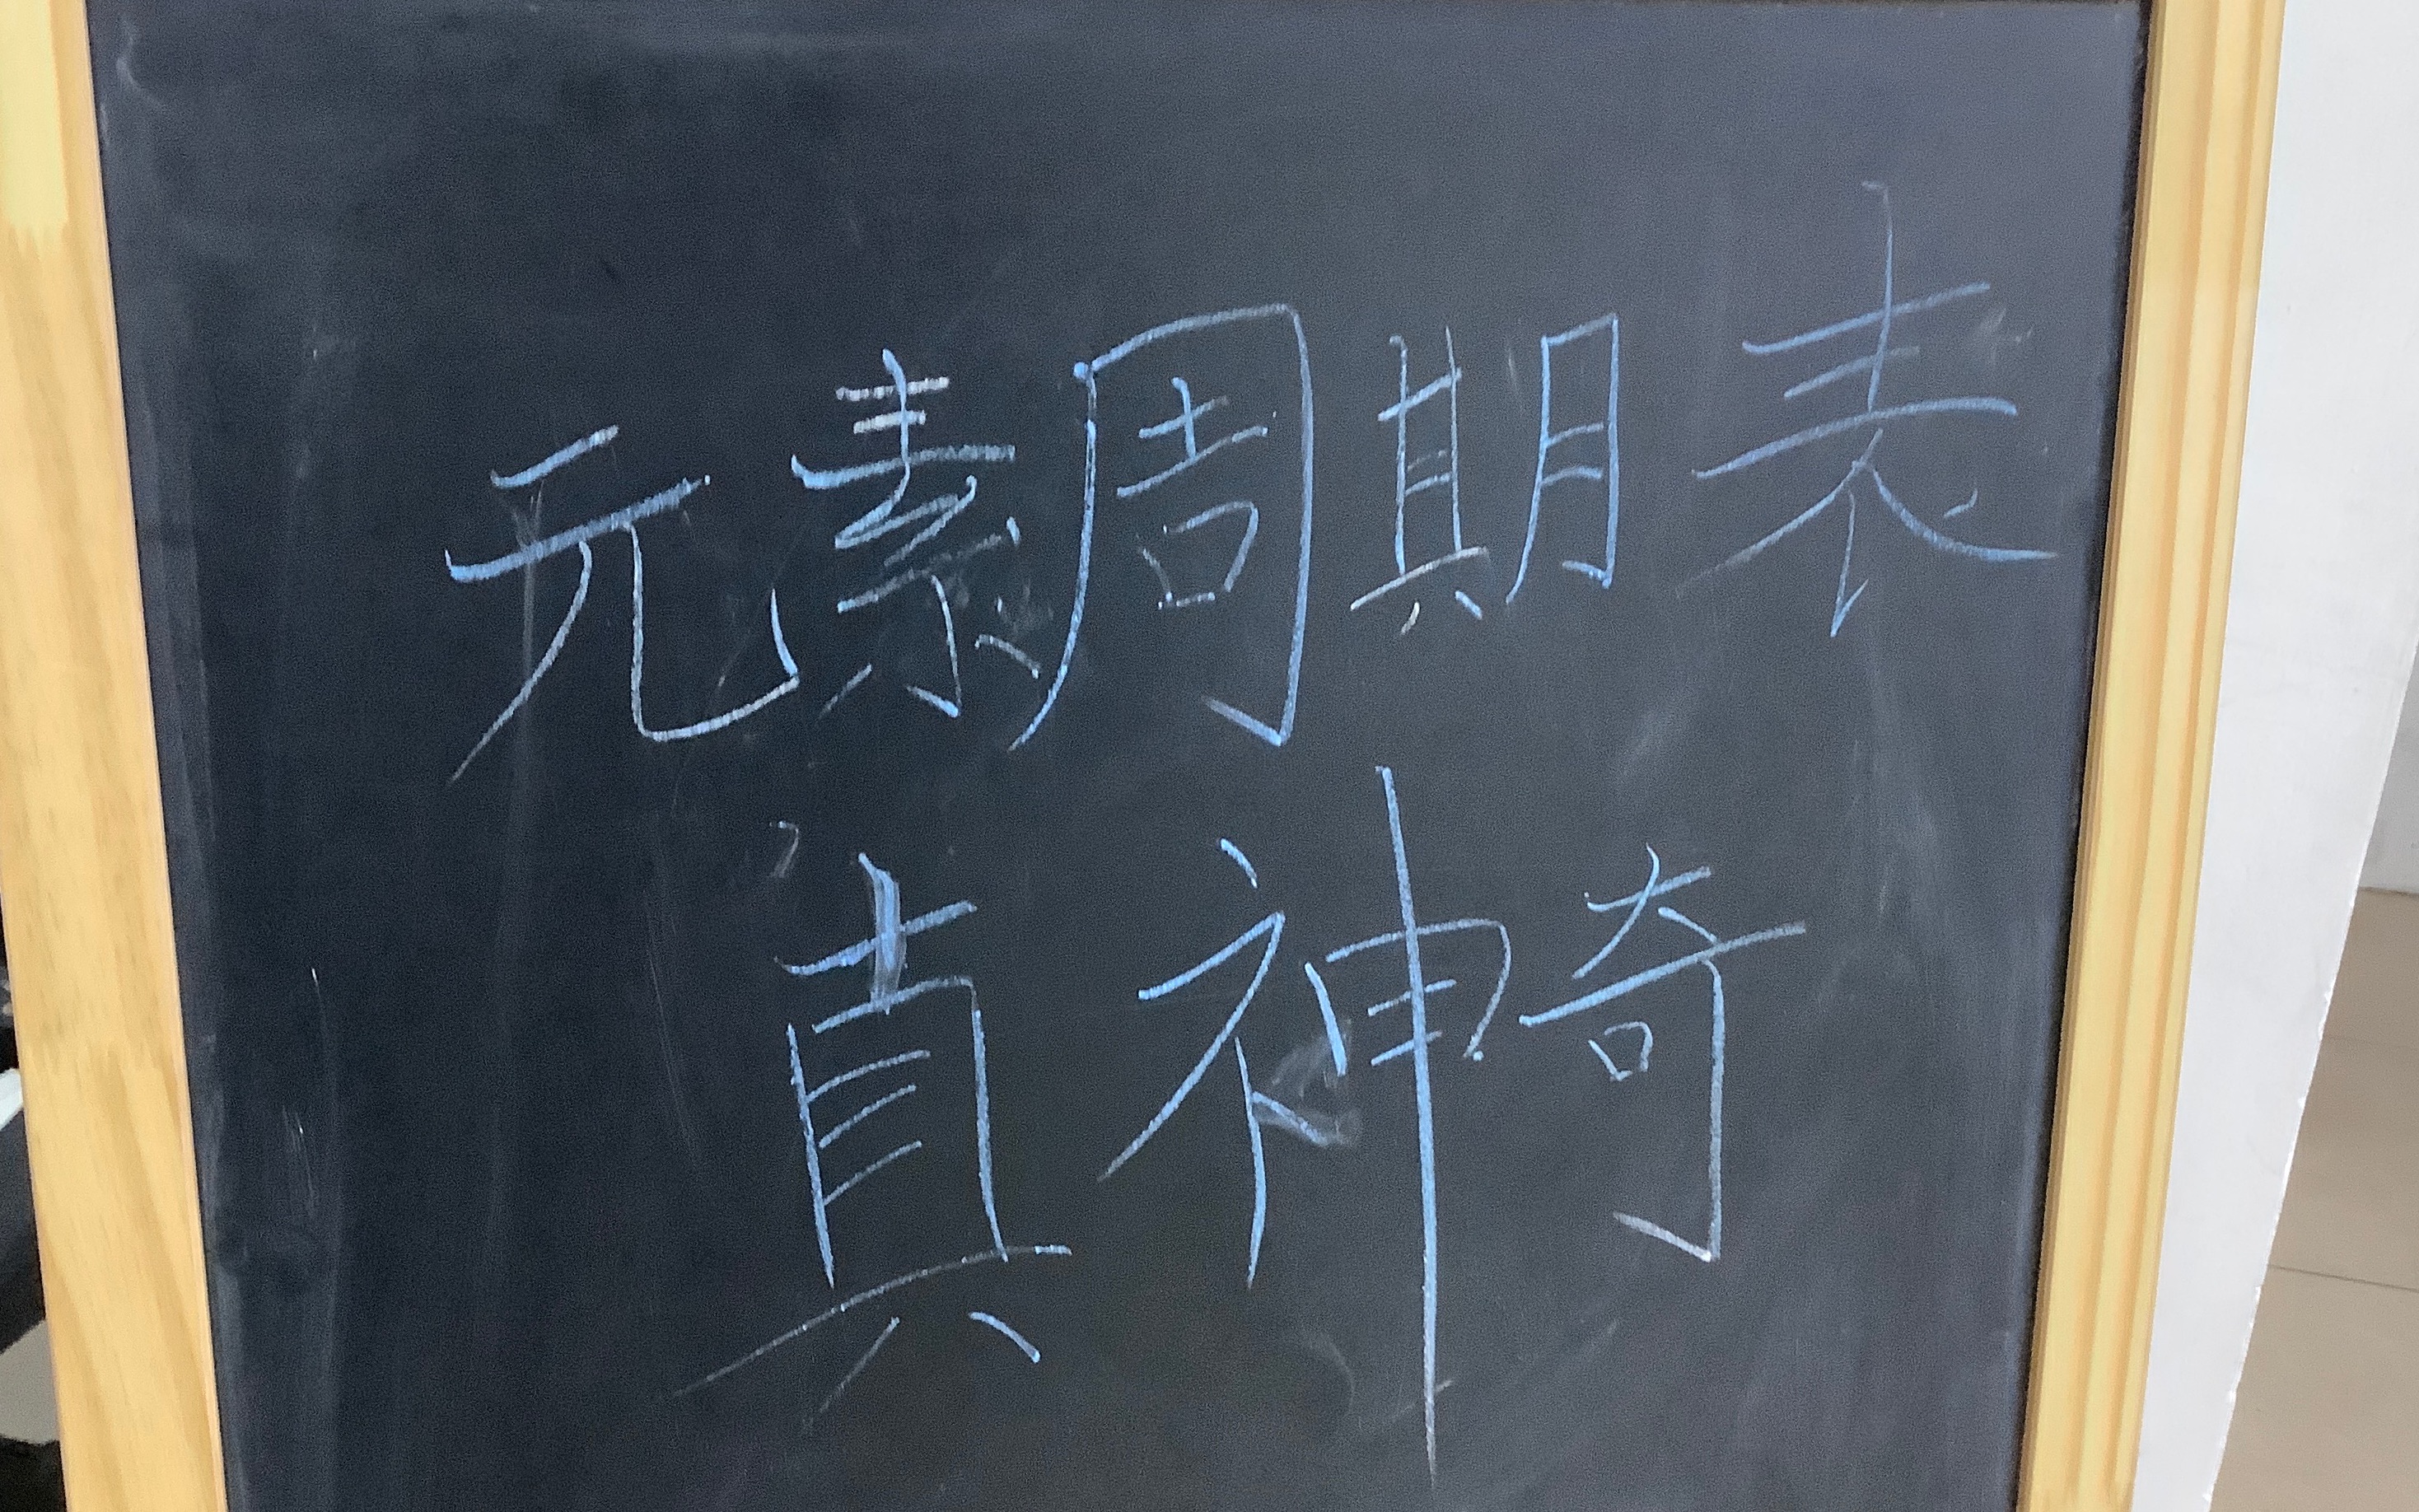 元素周期表
真神奇